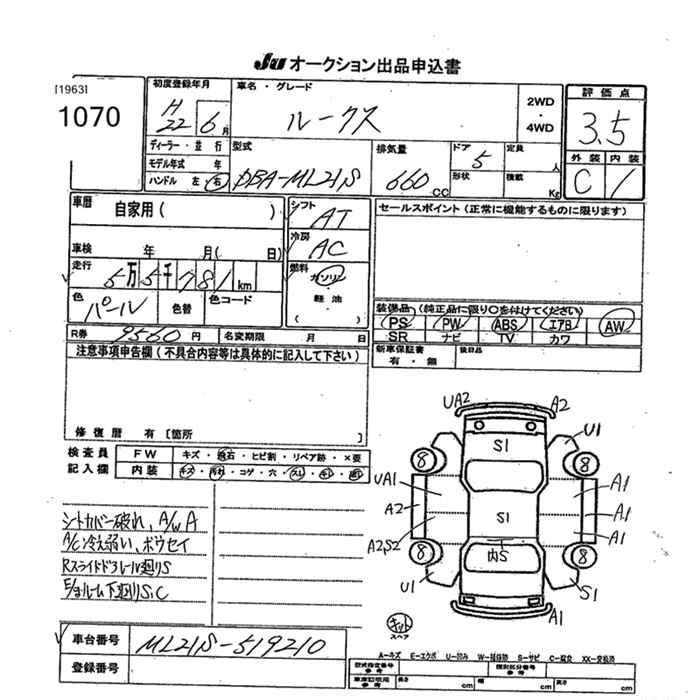 Ju オークション出品申込書
[1963]
1070
初度登録年月
H22 6月
車名・グレード
ルークス
2WD
・
4WD
評価点
3.5
ディーラー・並行
モデル年式 年
ハンドル 左 右
型式
DBA-ML21S
排気量
660 CC
ドア
5
形状
定員
人
積載
Kg
外装 内装
C 1
車暦
自家用( )
シフト
AT
セールスポイント(正常に機能するものに限ります)
車検 年 月( 日)
冷房
AC
走行
5万5千781km
燃料
ガソリン
軽油
( )
色
パール
色替
色コード
装備品(純正品に限り○を付けてください)
PS PW ABS エアB AW
SR ナビ TV カワ
R券 9560円
名変期限 月 日
新車保証書
有・無
後日品
注意事項申告欄(不具合内容等は具体的に記入して下さい)
修復暦 有[箇所 ]
検査員
記入欄
FW キズ・飛石・ヒビ割・リペア跡・×要
内装
シートカバー破れ、A/W A
A/C冷え弱い、ボウセイ
Rスライドドアレール廻りS
E/gルーム下廻りS.C
UA2
A2
S1
U1
8
8
UA1
A1
A2
A1
S1
A2S2
A1
8
8
内S
U1
S1
A1
キット
スペア
車台番号
ML21S-519210
登録番号
A-キズ E-エクボ U-凹み W-補修跡 S-サビ C-腐食 XX-交換済
型式指定番号
参考
類別区分番号
参考
車庫証明用
参考
長さ cm 幅 cm 高さ cm